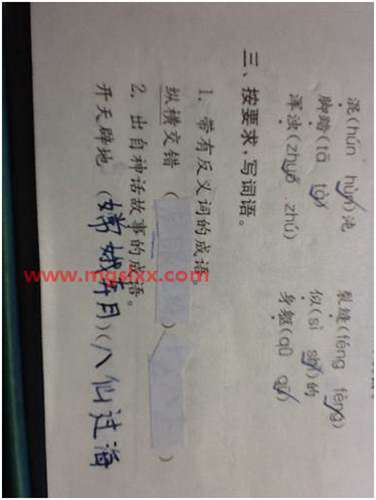 混(hún hùn)沌 裂缝(féng fèng)
脚踏(tā tà) 似(sì shì)的
浑浊(zhuó zhú) 身躯(qū
三、按要求,写词语。
1. 带有反义词的成语
纵横交错 ( ) (
2. 出自神话故事的成语。
开天辟地 (嫦娥奔月)(八仙过海
www.mgslxx.com